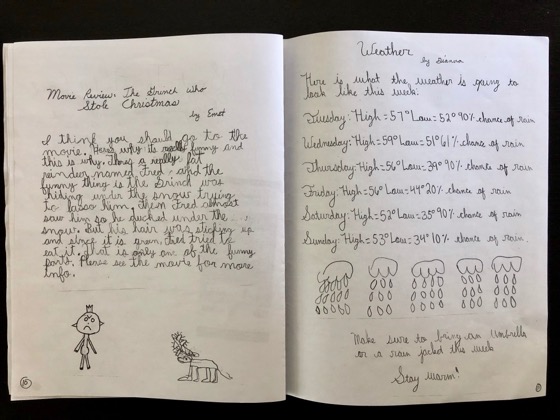 Movie Review: The Grinch Who
Stole Christmas
by Emet
I think you should go to the
movie. Here's why its really funny and
this is why. Theres a really fat
reindeer named fred, and the
funny thing is the Grinch was
hiding under the snow trying
to lasso him. then Fred almost
saw him so he ducked under the
snow. But his hair was sticking up
and since it is green, fred tried to
eat it. that is only one of the funny
parts. Please see the movie for more
info.
10
Weather
by Dianna
Here is what the weather is going to
look like this week:
Tuesday: High = 57° Low = 52° 90% chance of rain
Wednesday: High = 59° Low = 51° 61% chance of rain
Thursday: High = 56° Low = 39° 90% chance of rain
Friday: High = 56° Low = 44° 20% chance of rain
Saturday: High = 52° Low = 35° 90% chance of rain
Sunday: High = 53° Low = 34° 10% chance of rain.
Make sure to bring an Umbrella
or a rain jacked this week
Stay warm!